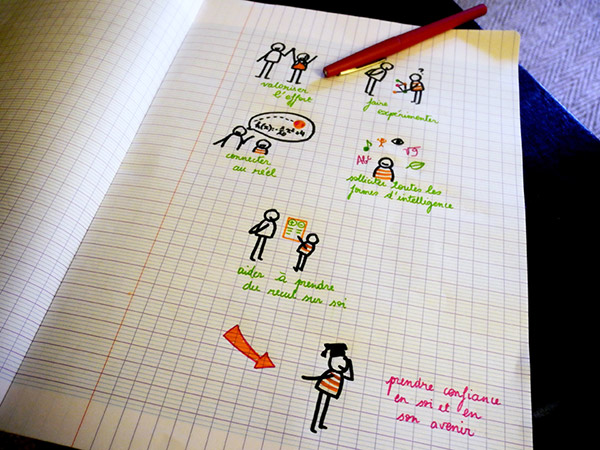 valoriser
l'effort
faire
expérimenter
connecter
au réel
solliciter toutes les
formes d'intelligence
aider à prendre
du recul sur soi
prendre confiance
en soi et en
son avenir